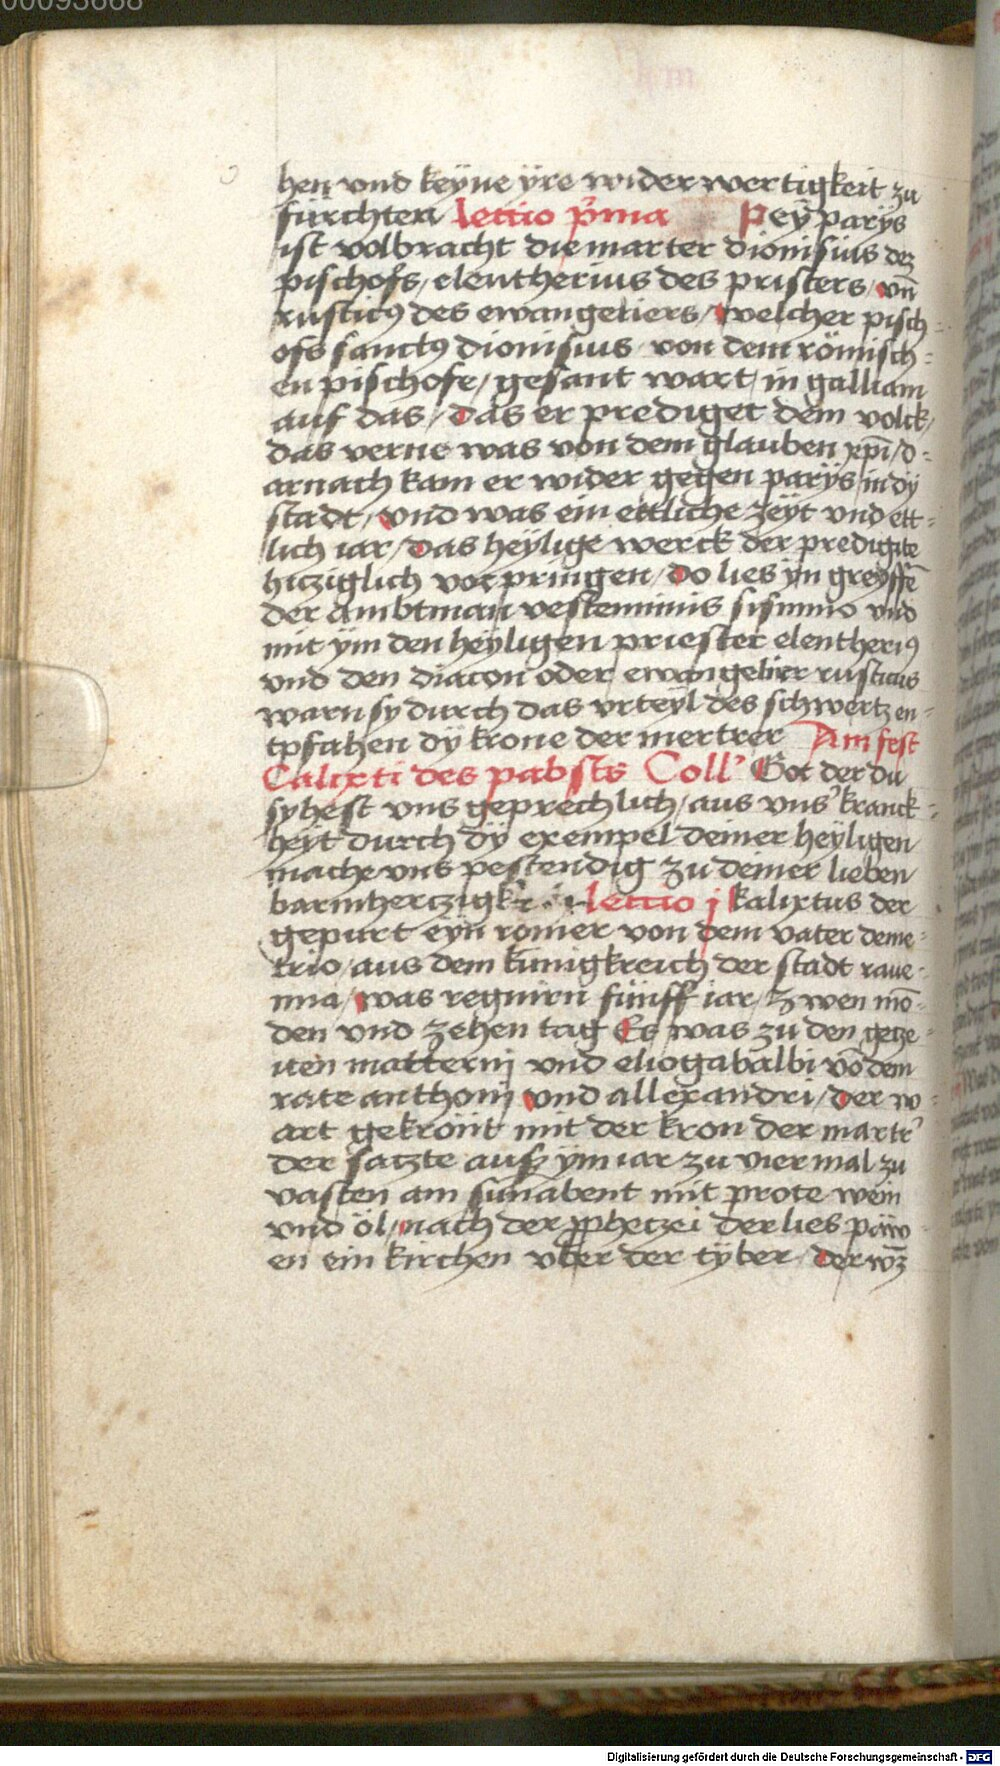 00093668
hen vnd keÿne ÿre widerwertigkeit zu
fürchten lectio p̄ma Peÿ parÿs
ist volbracht die marter dionisius dez
pischofs / elentherius des pristers / vn̄
rusticꝰ des ewangeliers / welcher pisch-
ofs sanctꝰ dionisius von dem römisch-
en pischofe / gesant wart / in galliam
auf das / das er prediget dem volck /
das verne was von dem glauben xp̄i / d-
arnach kam er wider gegen parÿs in dÿ
stadt / vnd was ein ettliche zeÿt vnd ett-
lich iar / das heÿlige werck der predigite
hicziglich vorpringen / do lies ÿn greÿffē
der ambtman vesteninus sisinnio vnd
mit ÿm den heÿligen priester elentheriꝰ
vnd den diacon oder ewangelier rusticus
warn sy durch das vrteÿl des schwertz en-
tpfahen dÿ krone der mertrer Am fest
Calixti des pabsts Coll' Got der du
syhest vns geprechlich / aus vns' kranck-
heÿt durch dÿ exempel deiner heÿligen
mache vns pestendig zu deiner lieben
barmherczigk lectio j kalixtus der
gepurt eÿn romer von dem vater deme-
trio / aus dem künigkreich der stadt raue-
nna / was regnirn fünff iar / zwen mō-
den vnd zehen tag Es was zu den gecze-
iten matternj vnd eliogabalbi vō dem
rate anthonj vnd allexandri / der w-
art gekrönt mit der kron der martr'
der saczte auf ÿm iar zu viermal zu
vasten am sunabent mit prote wein
vnd öl / nach der ꝓphetzei der lies päw-
en ein kirchen vber der tÿber / der wz̄
Digitalisierung gefördert durch die Deutsche Forschungsgemeinschaft - DFG